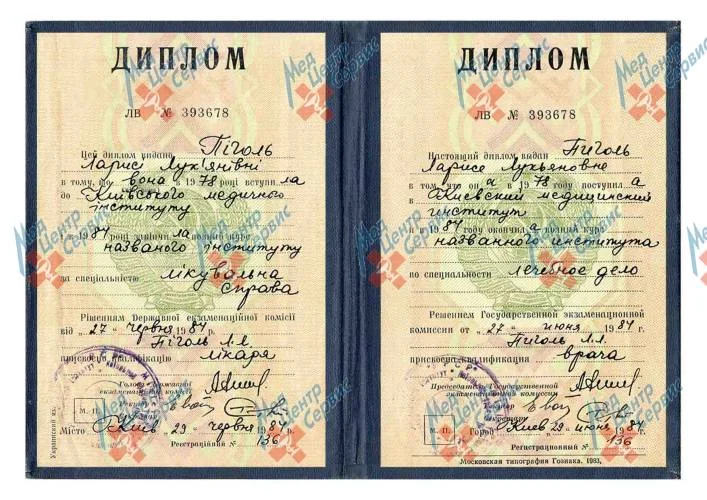 ДИПЛОМ
ЛВ № 393678
Цей диплом видано Піголь
Ларисе Лук'янівні
в тому, що вона в 1978 році вступила
до Київського медичного
інституту
і в 1984 році закінчила повний курс
названого інституту
за спеціальністю лікувальна
справа
Рішенням Державної екзаменаційної комісії
від „27" червня 1984 р.
Піголь Л.Л.
присвоєно кваліфікацію лікаря
Голова Державної
екзаменаційної комісії
М. П.
Місто Київ „29" червня 1984 р.
Реєстраційний № 136
Украинский яз.
ДИПЛОМ
ЛВ № 393678
Настоящий диплом выдан Пиголь
Ларисе Лукьяновне
в том, что она в 1978 году поступила
в Киевский медицинский
институт
и в 1984 году окончила полный курс
названного института
по специальности лечебное дело
Решением Государственной экзаменационной
комиссии от „27" июня 1984 г.
Пиголь Л.Л.
присвоена квалификация врача
Председатель Государственной
экзаменационной комиссии
Ректор
М. П.
Город Киев „29" июня 1984 г.
Регистрационный № 136
Московская типография Гознака. 1983.
Мед Центр Сервис